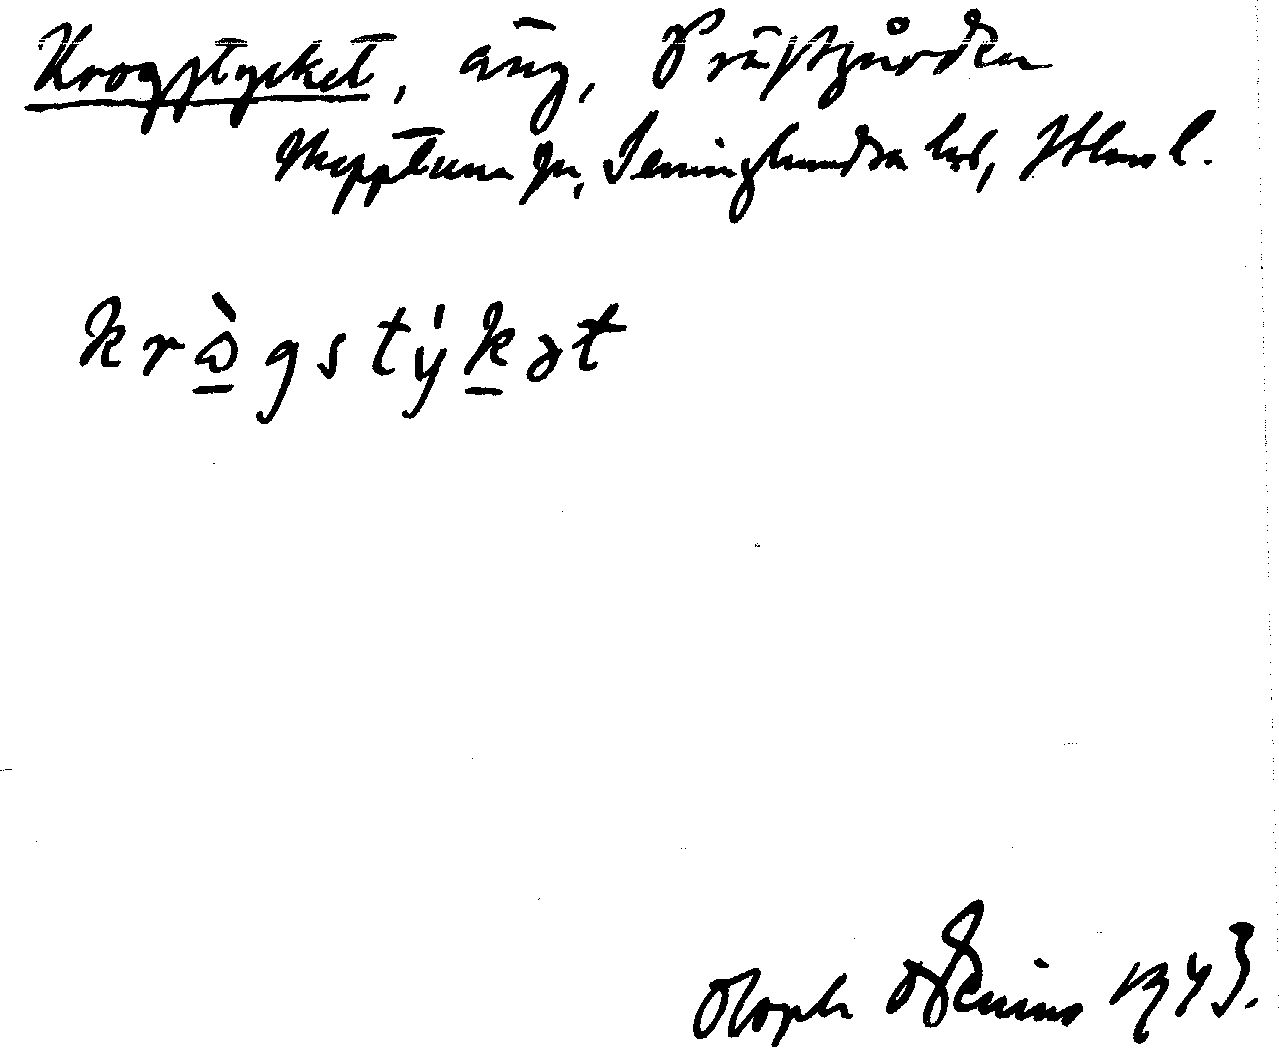 Krogstycket, äng, Prästgården
Skepptuna sn, Seminghundra hd, Sthms l.
krò̱gstýḵət
Oloph Odenius 1943.